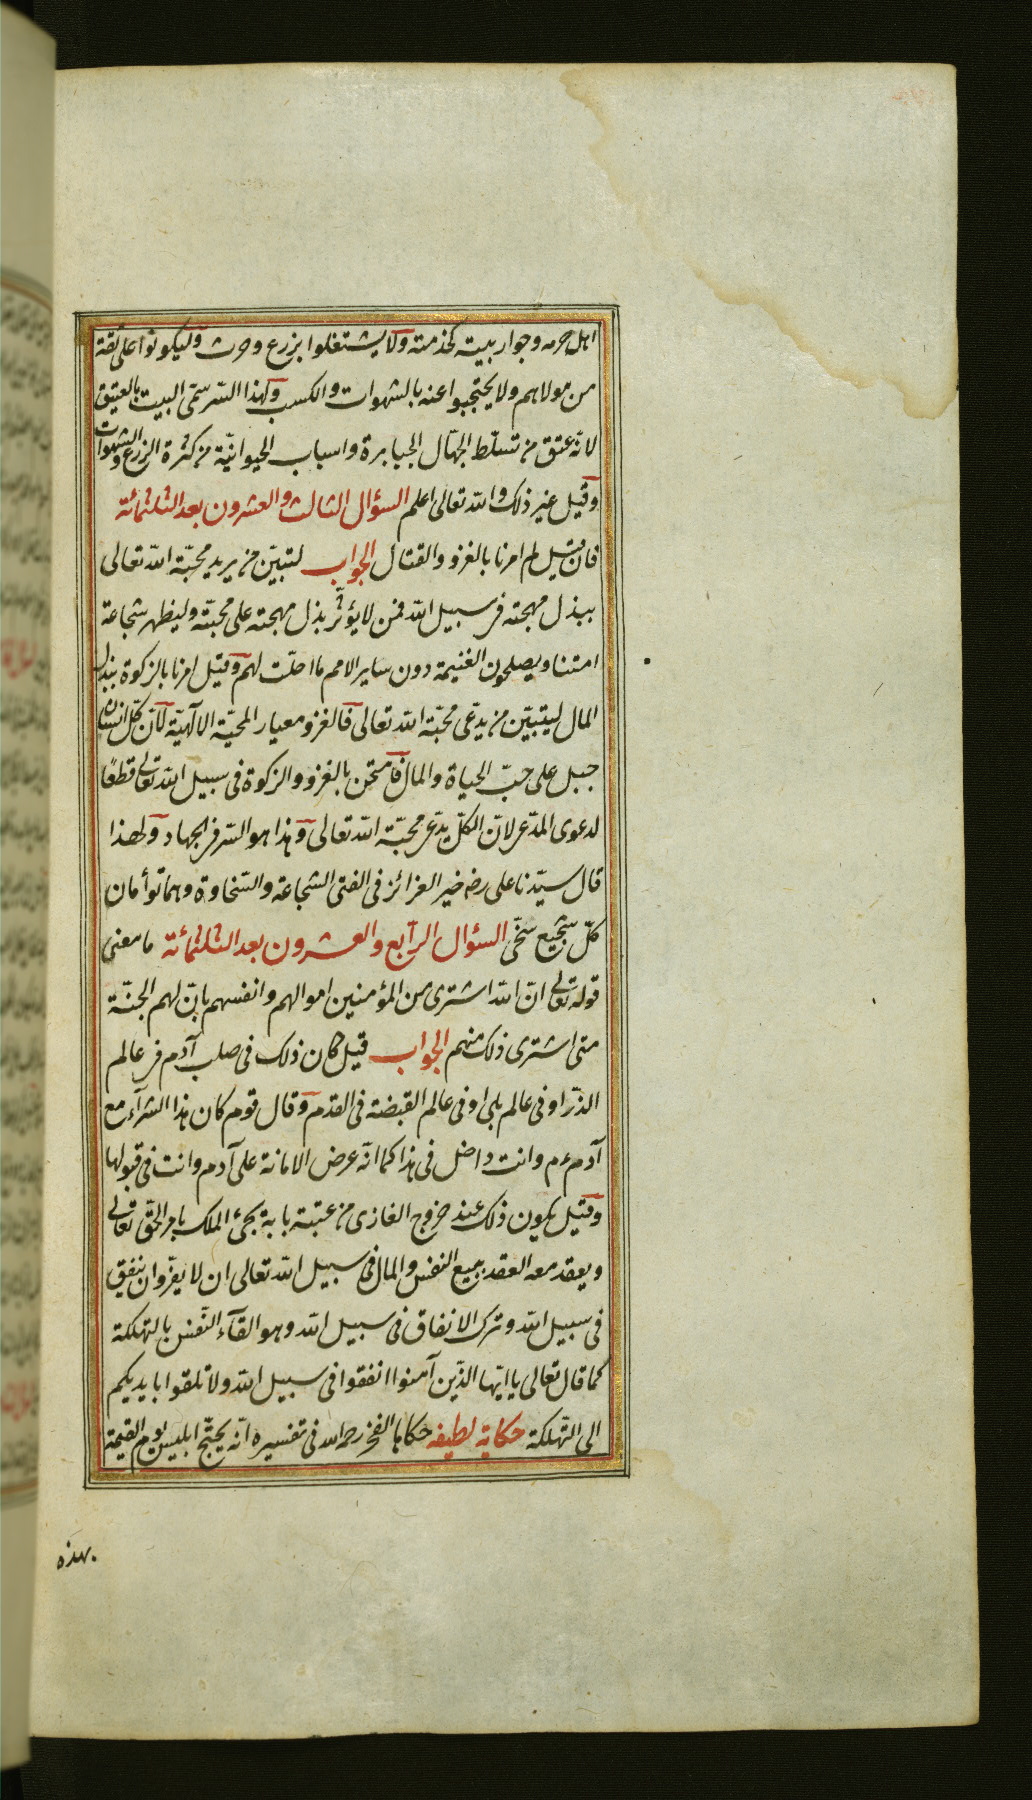 اهل حرمه وجوار بيته لخدمته ولا يشتغلوا بزرع وحرث وليكونوا على ثقة
من مولاهم ولا يحتجبوا عنه بالشهوات والكسب ولهذا السّر سمّى البيت بالعتيق
لانّه عتق من تسلّط الجهّال الجبابرة واسباب الحيوانيّة من كثرة الزرع والشهوات
وقيل غير ذلك والله تعالى اعلم السؤال الثالث والعشرون بعد الثلثمائة
فان قيل لم امرنا بالغزو والقتال الجواب لتبيّن من يريد محبّة الله تعالى
ببذل مهجته فى سبيل الله فمن لا يؤثر بذل مهجته على محبّته وليظهر شجاعة
امتنا ويصلحون الغنيمة دون ساير الامم ما احلّت لهم وقيل امرنا بالزكوة ببذل
المال ليتبيّن من يدّعى محبّة الله تعالى فالغزو معيار المحبّة الالهيّة لانّ كلّ انسان
جبل على حبّ الحياة والمال فامتحن بالغزو والزكوة فى سبيل الله تعالى قطعًا
لدعوى المدّعى لانّ الكلّ يدّعى محبّة الله تعالى وهذا هو السّر فى الجهاد ولهذا
قال سيّدنا على رضه خير الغرائز فى الفتى الشجاعة والسّخاوة وهما توأمان
كلّ شجيع سخّى السؤال الرّابع والعشرون بعد الثلثمائة ما معنى
قوله تعالى انّ الله اشترى من المؤمنين اموالهم وانفسهم بانّ لهم الجنّة
متى اشترى ذلك منهم الجواب قيل كان ذلك فى صلب آدم فى عالم
الذّر او فى عالم بلى او فى عالم القبضة فى القدم وقال قوم كان هذا الشرآء مع
آدم ءم وانت داخل فى هذا كما انّه عرض الامانة على آدم وانت فى قبولها
وقيل يكون ذلك عند خروج الغازى من عتبته بابه يجئ الملك بامر الحقّ تعالى
ويعقد معه العقد ببيع النفس والمال فى سبيل الله تعالى ان لا يفرّ وان ينفق
فى سبيل الله وترك الانفاق فى سبيل الله وهو القآء النّفس بالتهلكة
كما قال تعالى يا ايّها الذّين آمنوا انفقوا فى سبيل الله ولا تلقوا بايديكم
الى التّهلكة حكاية لطيفه حكاها الفخر رحمه الله فى تفسيره انّه يحتجّ ابليس يوم القيمة
بهذه